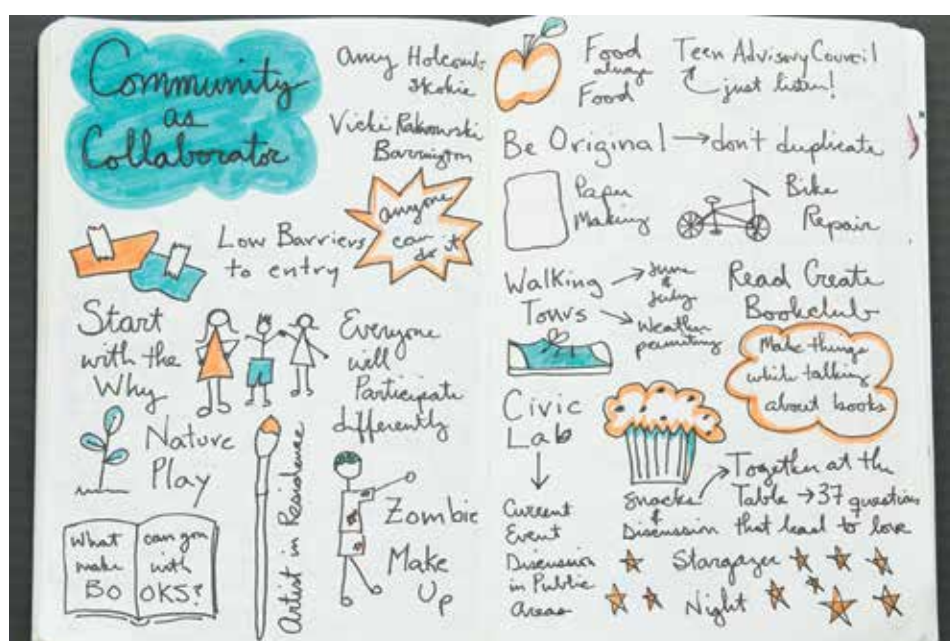 Community
as
Collaborator
Amy Holcomb
Skokie
Vicki Rakowski
Barrington
anyone
can
do it
Low Barriers
to entry
Start
with the
Why
Everyone
will
Participate
differently
Nature
Play
Artist in Residence
Zombie
Make
Up
What can you
make with
BO OKS?
Food
always
Food
Teen Advisory Council
just listen!
Be Original → don't duplicate
Paper
Making
Bike
Repair
Walking
Tours
June
&
July
Weather
permitting
Read Create
Bookclub
Make things
while talking
about books
Civic
Lab
Current
Event
Discussion
in Public
Areas
Snacks
&
Discussion
Together at the
Table → 37 questions
that lead to love
Stargazer
Night